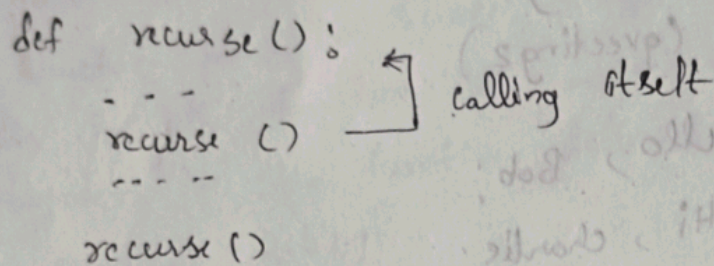 def recurse():
- - -
recurse ()
calling itself
-- -- --
recurse ()